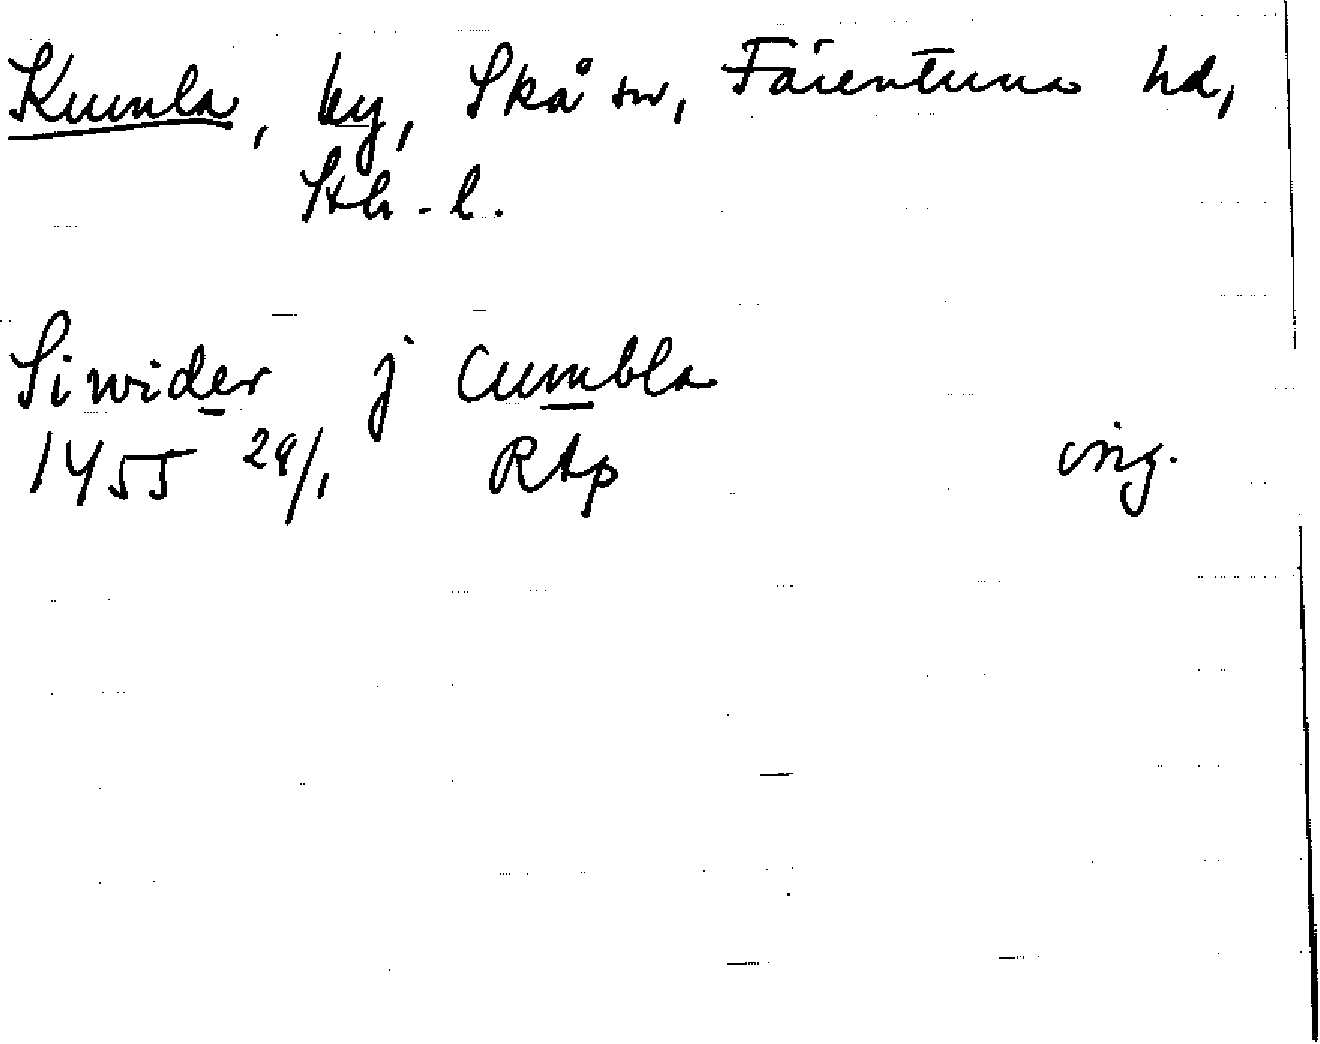 Kumla, by, Skå sn, Färentuna hd,
Sth-l.
Siwider j Cumbla
1455 28/1 RAp orig.